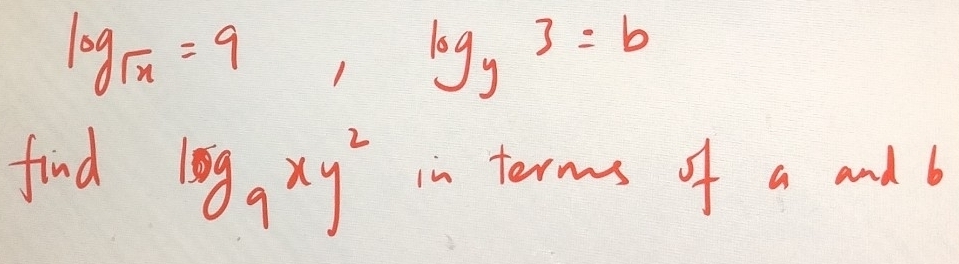 log√x = 9 , log_y 3 = b
find log_9 xy² in terms of a and b